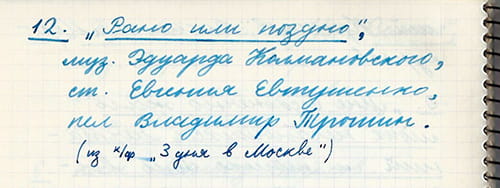 12. „Рано или поздно",
муз. Эдуарда Колмановского,
ст. Евгения Евтушенко,
пел Владимир Трошин.
(из к/ф „3 дня в Москве")